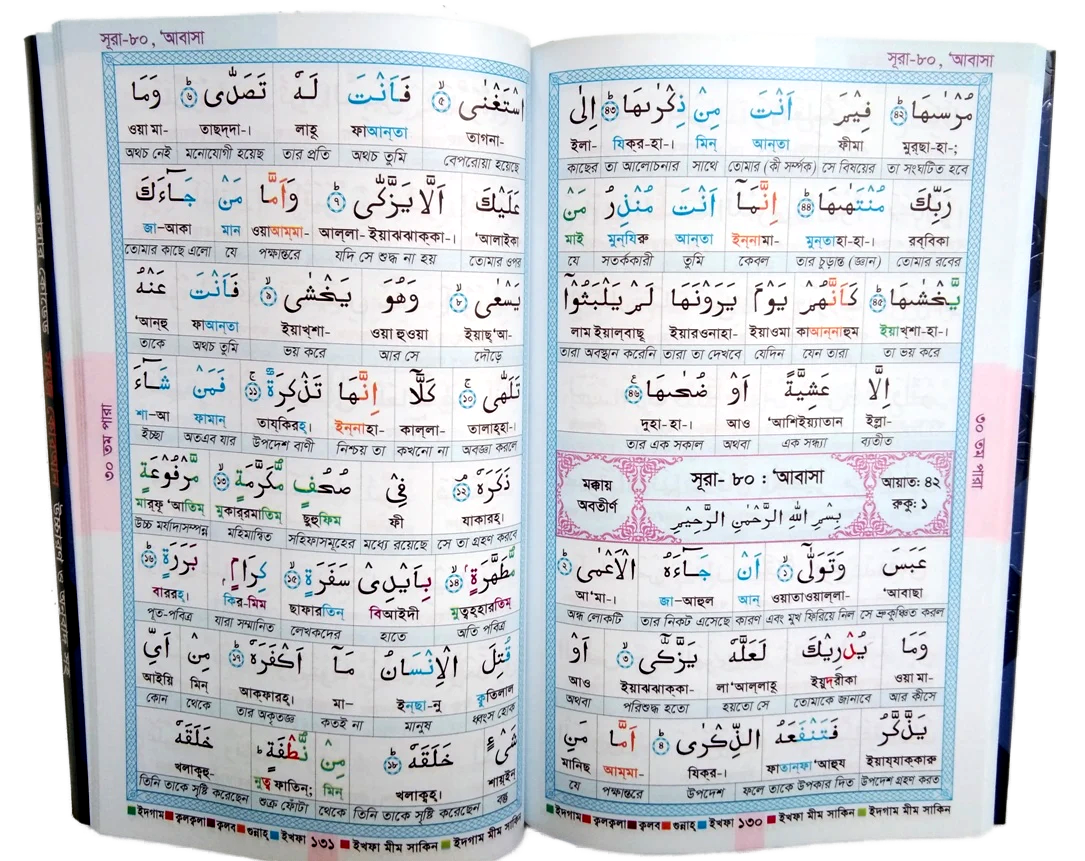 সূরা-৮০, 'আবাসা
مُرْسٰىهَا ﴿٤٢﴾ فِيْمَ اَنْتَ مِنْ ذِكْرٰىهَا ﴿٤٣﴾ اِلٰى
মুর্ছা-হা-; ফীমা আন্তা মিন্ যিক্র-হা-। ইলা-
তা সংঘটিত হবে সে বিষয়ের তোমার (কী সম্পর্ক) সাথে তা আলোচনার কাছের
رَبِّكَ مُنْتَهٰىهَا ﴿٤٤﴾ اِنَّمَآ اَنْتَ مُنْذِرُ مَنْ
রব্বিকা মুন্তাহা-হা-। ইন্নামা- আন্তা মুন্যিরু মাই
তোমার রবের তার চূড়ান্ত (জ্ঞান) কেবল তুমি সতর্ককারী যে
يَّخْشٰىهَا ﴿٤٥﴾ كَاَنَّهُمْ يَوْمَ يَرَوْنَهَا لَمْ يَلْبَثُوْٓا
ইয়াখ্শা-হা-। কাআন্নাহুম ইয়াওমা ইয়ারওনাহা- লাম ইয়ালবাছূ
তা ভয় করে যেন তারা যেদিন তারা তা দেখবে তারা অবস্থান করেনি
اِلَّا عَشِيَّةً اَوْ ضُحٰىهَا ﴿٤٦﴾
ইল্লা- 'আশিইয়্যাতান আও দুহা-হা-।
ব্যতীত এক সন্ধ্যা অথবা তার এক সকাল
মক্কায় অবতীর্ণ
সূরা- ৮০ : 'আবাসা
بِسْمِ اللّٰهِ الرَّحْمٰنِ الرَّحِيْمِ
আয়াত: ৪২
রুকু: ১
عَبَسَ وَتَوَلّٰٓى ﴿١﴾ اَنْ جَآءَهُ الْاَعْمٰى ﴿٢﴾
'আবাছা ওয়াতাওয়াল্লা- আন্ জা-আহুল আ'মা-।
সে ভ্রুকুঞ্চিত করল এবং মুখ ফিরিয়ে নিল কারণ তার নিকট এসেছে অন্ধ লোকটি
وَمَا يُدْرِيْكَ لَعَلَّهٗ يَزَّكّٰٓى ﴿٣﴾ اَوْ
ওয়া মা- ইয়ুদ্রীকা লা'আল্লাহূ ইয়াঝ্ঝাক্কা- আও
আর কীসে তোমাকে জানাবে হয়তো সে পরিশুদ্ধ হতো অথবা
يَذَّكَّرُ فَتَنْفَعَهُ الذِّكْرٰى ﴿٤﴾ اَمَّا مَنِ
ইয়ায্যাক্কারু ফাতান্ফা'আহুয যিক্র-। আম্মা- মানিছ
উপদেশ গ্রহণ করত ফলে তাকে উপকার দিত উপদেশ পক্ষান্তরে যে
ইদগাম ক্বলক্বলা ক্বলব গুন্নাহ্ ইখফা ১৩০ ইখফা মীম সাকিন ইদগাম মীম সাকিন
৩০ তম পারা
সূরা-৮০, 'আবাসা
اسْتَغْنٰى ﴿٥﴾ فَاَنْتَ لَهٗ تَصَدّٰى ﴿٦﴾ وَمَا
তাগনা- ফাআন্তা লাহূ তাছদ্দা-। ওয়া মা-
বেপরোয়া হয়েছে অথচ তুমি তার প্রতি মনোযোগী হয়েছ অথচ নেই
عَلَيْكَ اَلَّا يَزَّكّٰى ﴿٧﴾ وَاَمَّا مَنْ جَآءَكَ
'আলাইকা আল্লা- ইয়াঝ্ঝাক্কা-। ওয়াআম্মা- মান জা-আকা
তোমার ওপর যদি সে শুদ্ধ না হয় পক্ষান্তরে যে তোমার কাছে এলো
يَسْعٰى ﴿٨﴾ وَهُوَ يَخْشٰى ﴿٩﴾ فَاَنْتَ عَنْهُ
ইয়াছ'আ- ওয়া হুওয়া ইয়াখ্শা- ফাআন্তা 'আন্হু
দৌড়ে আর সে ভয় করে অথচ তুমি তাকে
تَلَهّٰى ﴿١٠﴾ كَلَّآ اِنَّهَا تَذْكِرَةٌ ﴿١١﴾ فَمَنْ شَآءَ
তালাহ্হা-। কাল্লা- ইন্নাহা- তায্কিরহ্। ফামান্ শা-আ
অবজ্ঞা করলে কখনো না নিশ্চয় তা উপদেশ বাণী অতএব যার ইচ্ছা
ذَكَرَهٗ ﴿١٢﴾ فِيْ صُحُفٍ مُّكَرَّمَةٍ ﴿١٣﴾ مَّرْفُوْعَةٍ
যাকারহ্। ফী ছুহুফিম মুকার্রমাতিম মার্ফূ'আতিম
সে তা গ্রহণ করবে মধ্যে রয়েছে সহিফাসমূহের মহিমান্বিত উচ্চ মর্যাদাসম্পন্ন
مُّطَهَّرَةٍ ﴿١٤﴾ بِاَيْدِيْ سَفَرَةٍ ﴿١٥﴾ كِرَامٍۭ بَرَرَةٍ ﴿١٦﴾
মুত্বহ্হারতিম বিআইদী ছাফারতিন্ কির-মিম বাররহ্।
অতি পবিত্র হাতে লেখকদের যারা সম্মানিত পূত-পবিত্র
قُتِلَ الْاِنْسَانُ مَآ اَكْفَرَهٗ ﴿١٧﴾ مِنْ اَيِّ
কুতিলাল ইন্ছা-নু মা- আক্ফারহ্। মিন্ আইয়ি
ধ্বংস হোক মানুষ কতই না তার অকৃতজ্ঞ থেকে কোন
شَيْءٍ خَلَقَهٗ ﴿١٨﴾ مِنْ نُّطْفَةٍ خَلَقَهٗ
শায়ইন্ খলাক্বহ্। মিন্ নুত্ব ফাতিন্; খলাক্বহূ-
বস্তু তিনি তাকে সৃষ্টি করেছেন থেকে শুক্র ফোঁটা তিনি তাকে সৃষ্টি করেছেন
ইদগাম ক্বলক্বলা ক্বলব গুন্নাহ্ ইখফা ১৩১ ইখফা মীম সাকিন ইদগাম মীম সাকিন
৩০ তম পারা